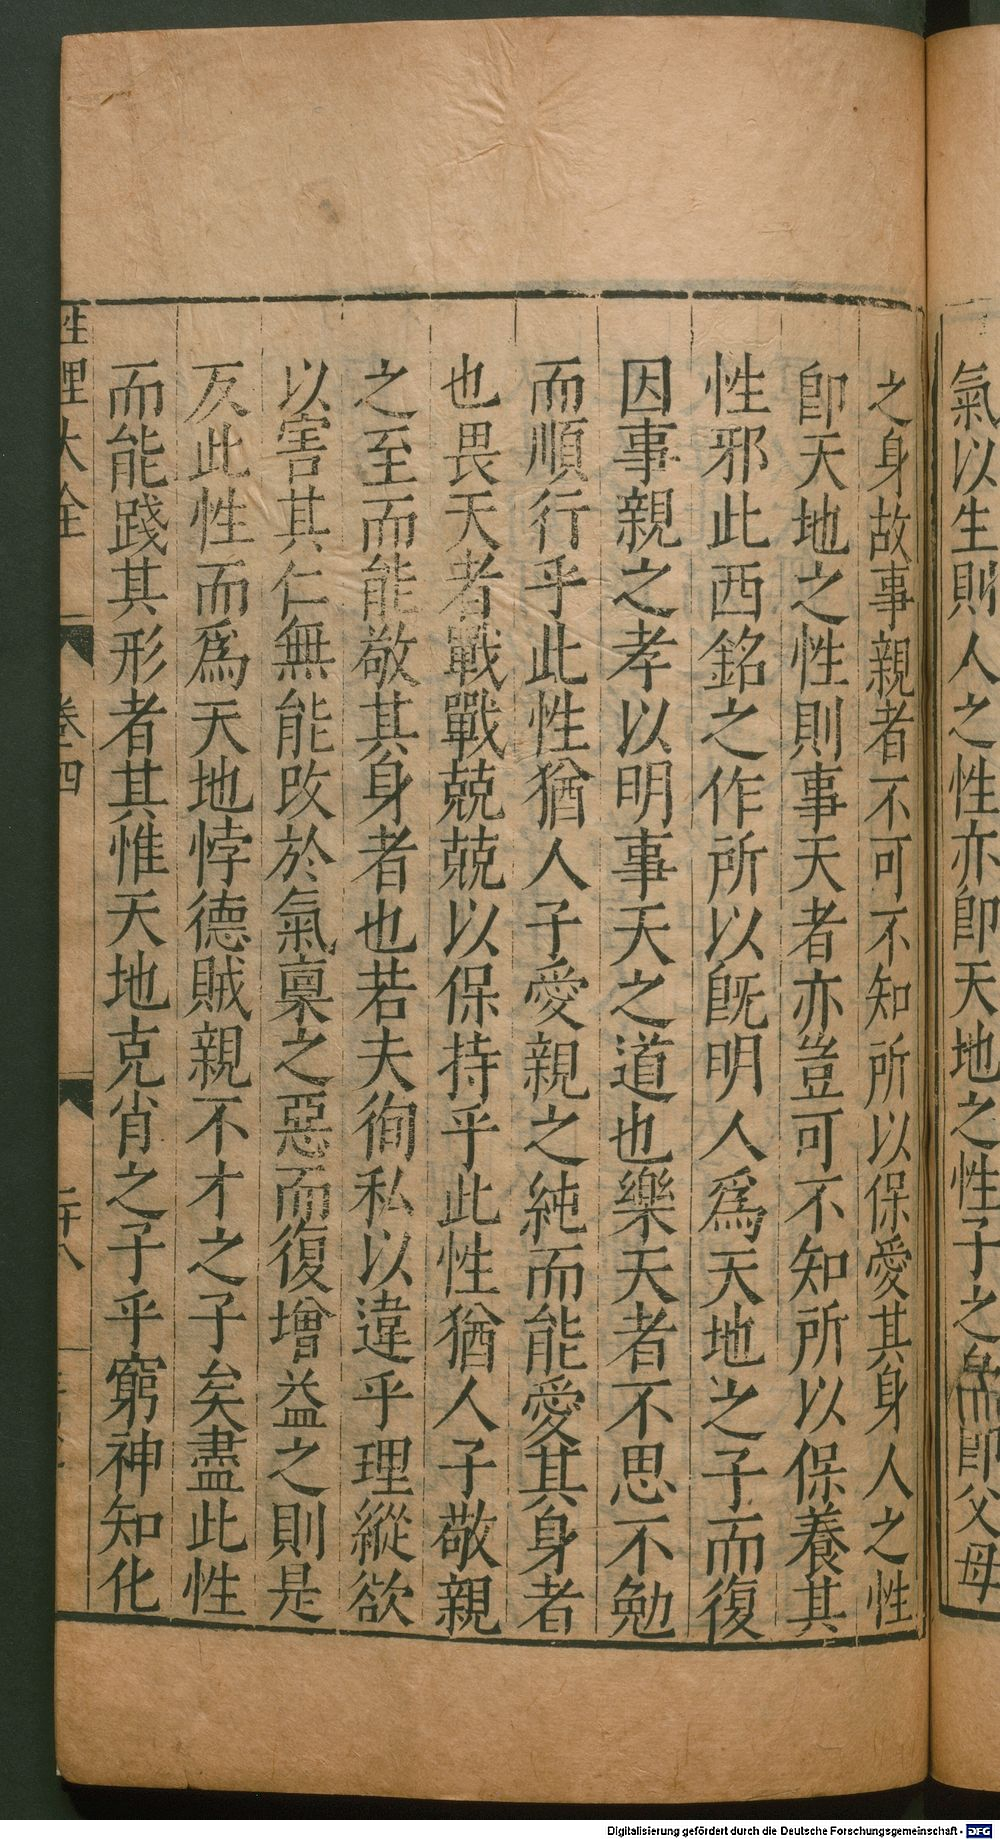 氣以生則人之性亦即天地之性子之身即父母
之身故事親者不可不知所以保愛其身人之性
卽天地之性則事天者亦豈可不知所以保養其
性邪此西銘之作所以旣明人爲天地之子而復
因事親之孝以明事天之道也樂天者不思不勉
而順行乎此性猶人子愛親之純而能愛其身者
也畏天者戰戰兢兢以保持乎此性猶人子敬親
之至而能敬其身者也若夫徇私以違乎理縱欲
以害其仁無能改於氣稟之惡而復增益之則是
反此性而爲天地悖德賊親不才之子矣盡此性
而能踐其形者其惟天地克肖之子乎窮神知化
性理大全 卷四 二十八
Digitalisierung gefördert durch die Deutsche Forschungsgemeinschaft - DFG